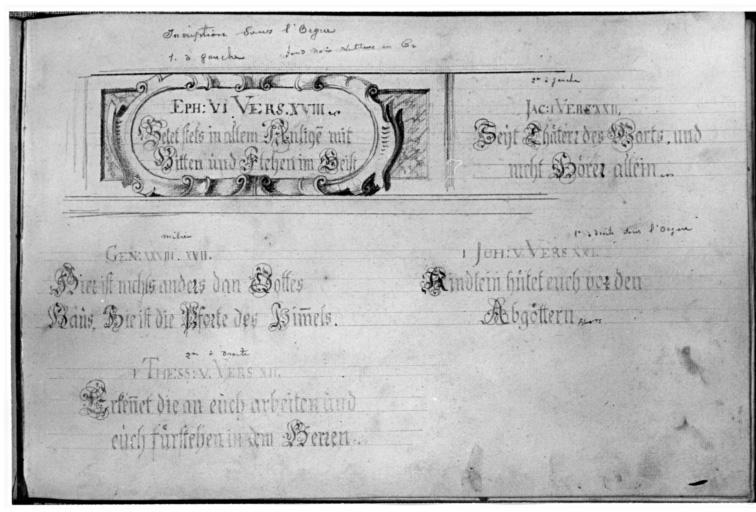 Inscription sous l'Orgue
1. à gauche fond noir Lettres en Or
EPH: VI VERS. XVIII.
Betet stets in allem Anlige mit
Bitten ünd Flehen im Geist
2me à gauche
JAC: I VERS XXII.
Seyt Thäterr des Worts, und
nicht Hörer allein
milieu
GEN: XXVIII. XVII.
Hier ist nichts anders dan Gottes
Haüs, Hie ist die Pforte des Him̄els.
1re à droite sous l'Orgue
I JOH: V. VERS XXI.
Kindlein hütet euch vor den
Abgöttern
2me à droite
I THESS: V. VERS XII.
Erken̄et die an eüch arbeiten ünd
eüch fürstehen in dem Herren